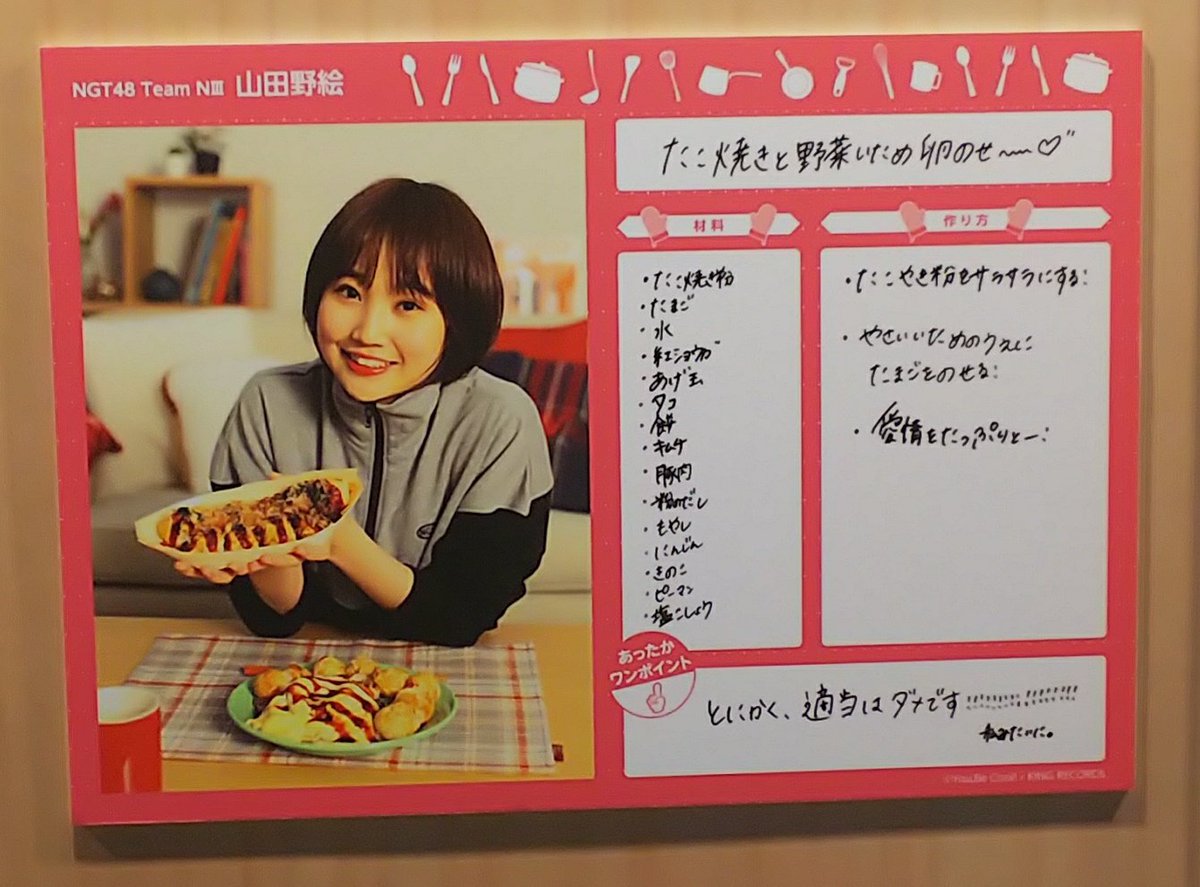 NGT48 Team NⅢ 山田野絵
たこ焼きと野菜いため卵のせ〜〜♡"
材料
・たこ焼き粉
・たまご
・水
・紅ショウガ
・あげ玉
・タコ
・餅
・キムチ
・豚肉
・粉のだし
・もやし
・にんじん
・きのこ
・ピーマン
・塩こしょう
作り方
・たこやき粉をサラサラにする!
・やさいいためのうえに
たまごをのせる!
・愛情をたっぷりとー!
あったか
ワンポイント
とにかく、適当はダメです!!!!!!!!!! !!!!!!!!
私みたいに。
©YouBe Cool! / KING RECORDS